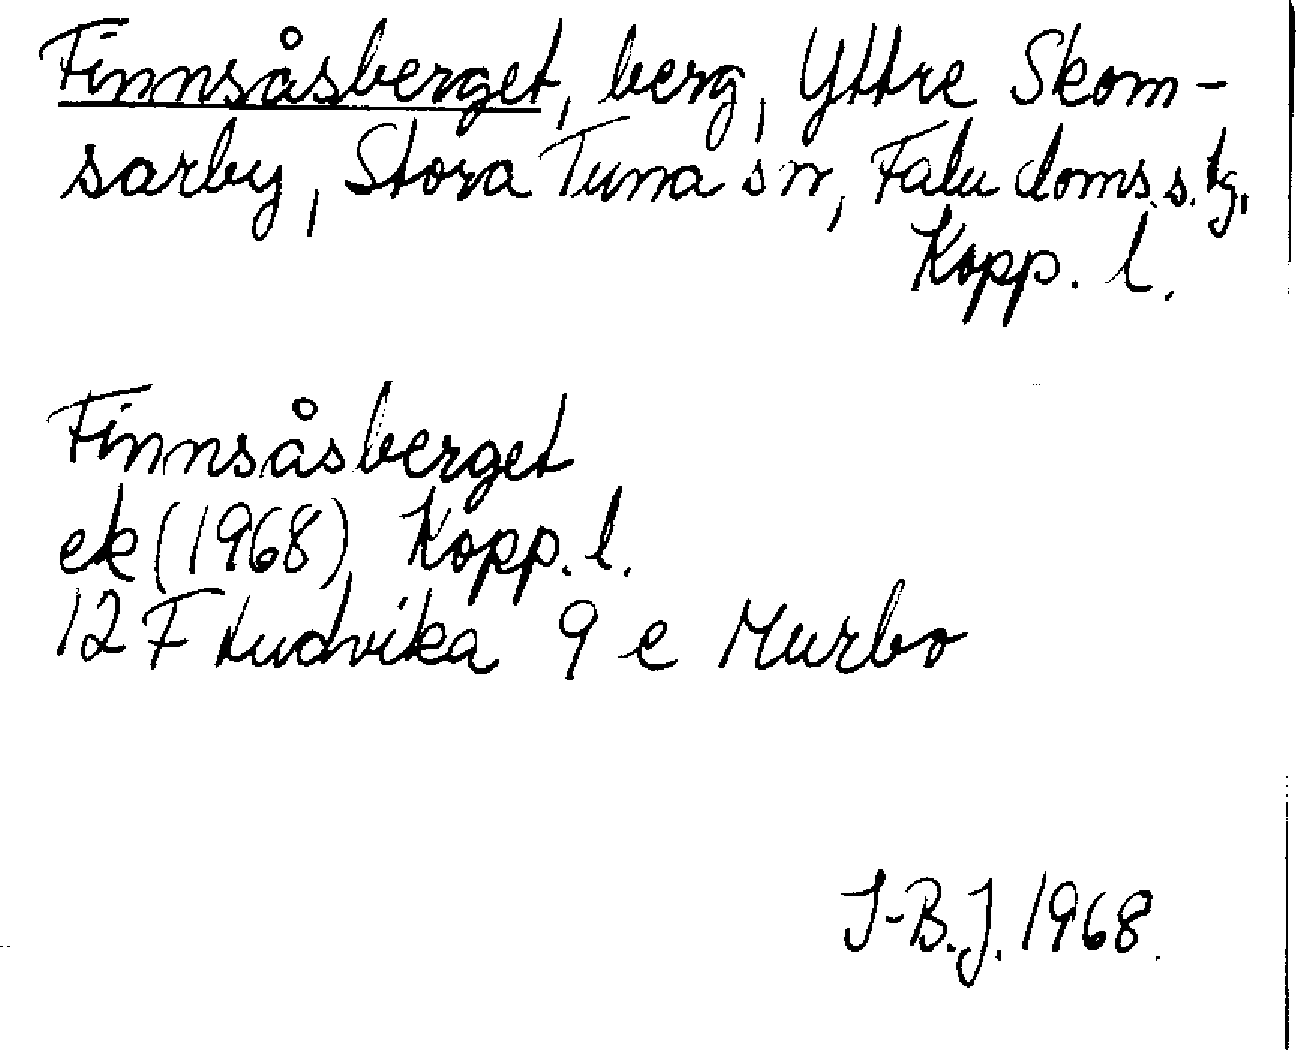 Finnsåsberget, berg, Yttre Skom-
sarby, Stora Tuna sn, Falu doms.s. tg,
Kopp. l.
Finnsåsberget
ek (1968), Kopp. l.
12 F Ludvika 9 e Murbo
I-B.J. 1968.